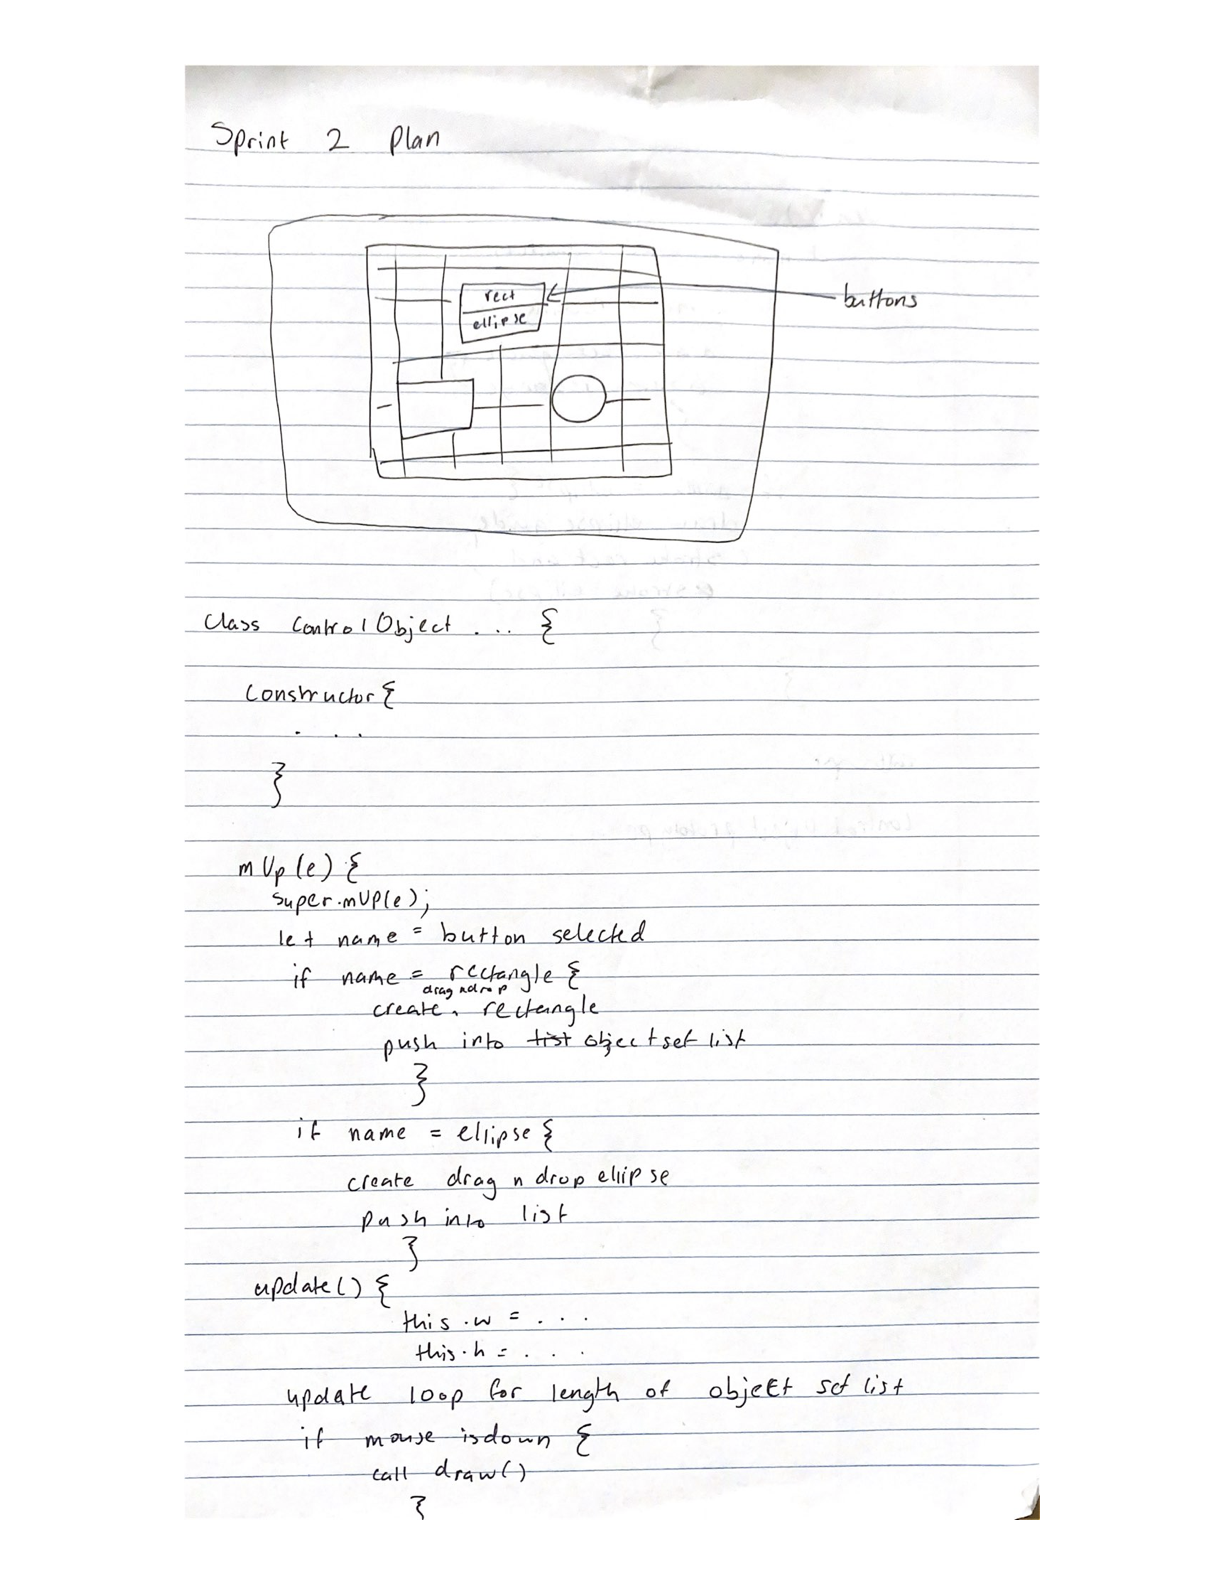 Sprint 2 Plan
rect
ellipse
buttons
Class ControlObject . . . {
Constructor {
. . .
}
mUp(e) {
super.mUP(e);
let name = button selected
if name = rectangle {
drag n drop
create ^ rectangle
push into list objectset list
}
if name = ellipse {
create drag n drop ellipse
push into list
}
update() {
this.w = . . .
this.h = . . .
update loop for length of object set list
if mouse isdown {
call draw()
}